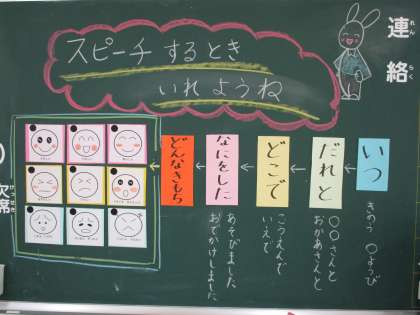 スピーチするとき
いれようね
連絡
れん
らく
いつ
きのう 〇よう日
だれと
〇〇さんと
おかあさんと
どこで
こうえんで
いえで
なにをした
あそびました
おでかけしました
どんなきもち
席